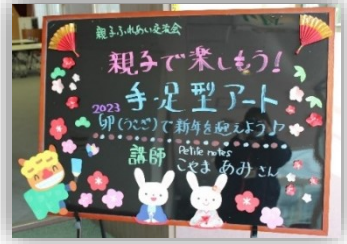 親子ふれあい交流会
親子で楽しもう!
手足型アート
2023 卯(うさぎ)で新年を迎えよう♪
講師 Petite notes
こやま あみさん